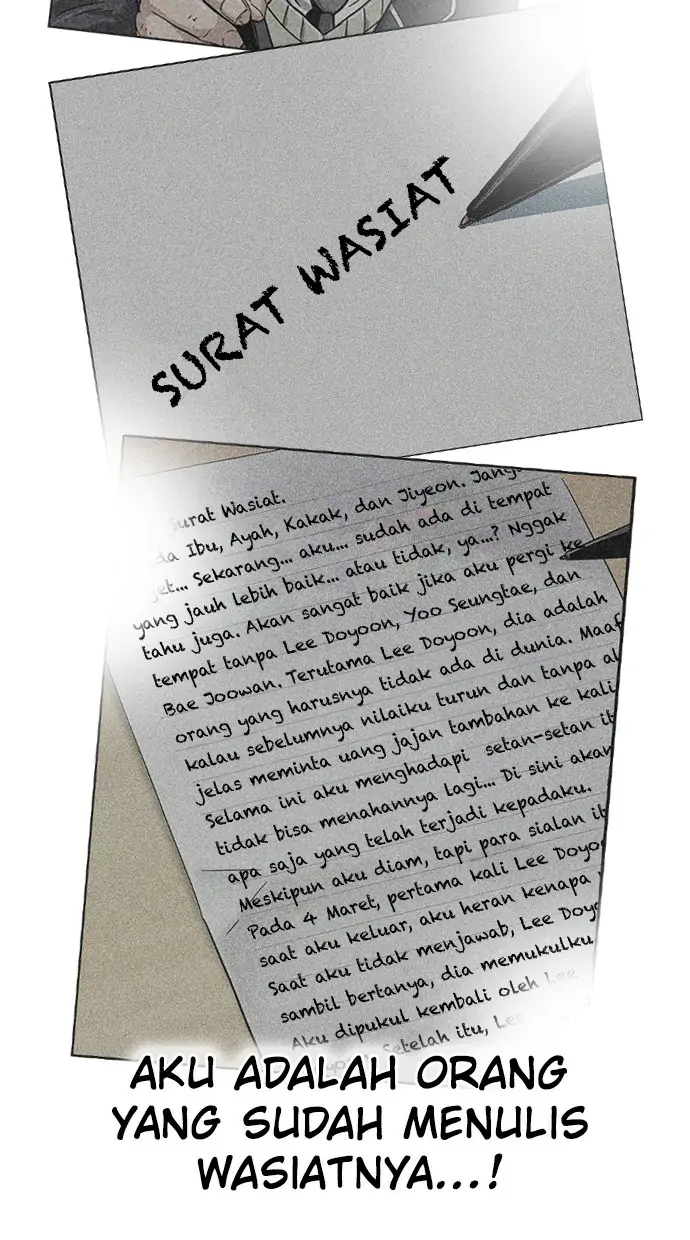 SURAT WASIAT
Surat Wasiat.
Ibu, Ayah, Kakak, dan Jiyeon.
Sekarang... aku... sudah ada di tempat
yang jauh lebih baik... atau tidak, ya...? Nggak
tahu juga. Akan sangat baik jika aku pergi ke
tempat tanpa Lee Doyoon, Yoo Seungtae, dan
Bae Joowan. Terutama Lee Doyoon, dia adalah
orang yang harusnya tidak ada di dunia. Maaf
kalau sebelumnya nilaiku turun dan tanpa
jelas meminta uang jajan tambahan ke kali
Selama ini aku menghadapi setan-setan
tidak bisa menahannya lagi... Di sini akan
apa saja yang telah terjadi kepadaku.
Meskipun aku diam, tapi para sialan
Pada 4 Maret, pertama kali Lee
saat aku keluar, aku heran kenapa
Saat aku tidak menjawab, Lee
sambil bertanya, dia memukulku
Aku dipukul kembali oleh Lee
Setelah itu,
AKU ADALAH ORANG
YANG SUDAH MENULIS
WASIATNYA...!